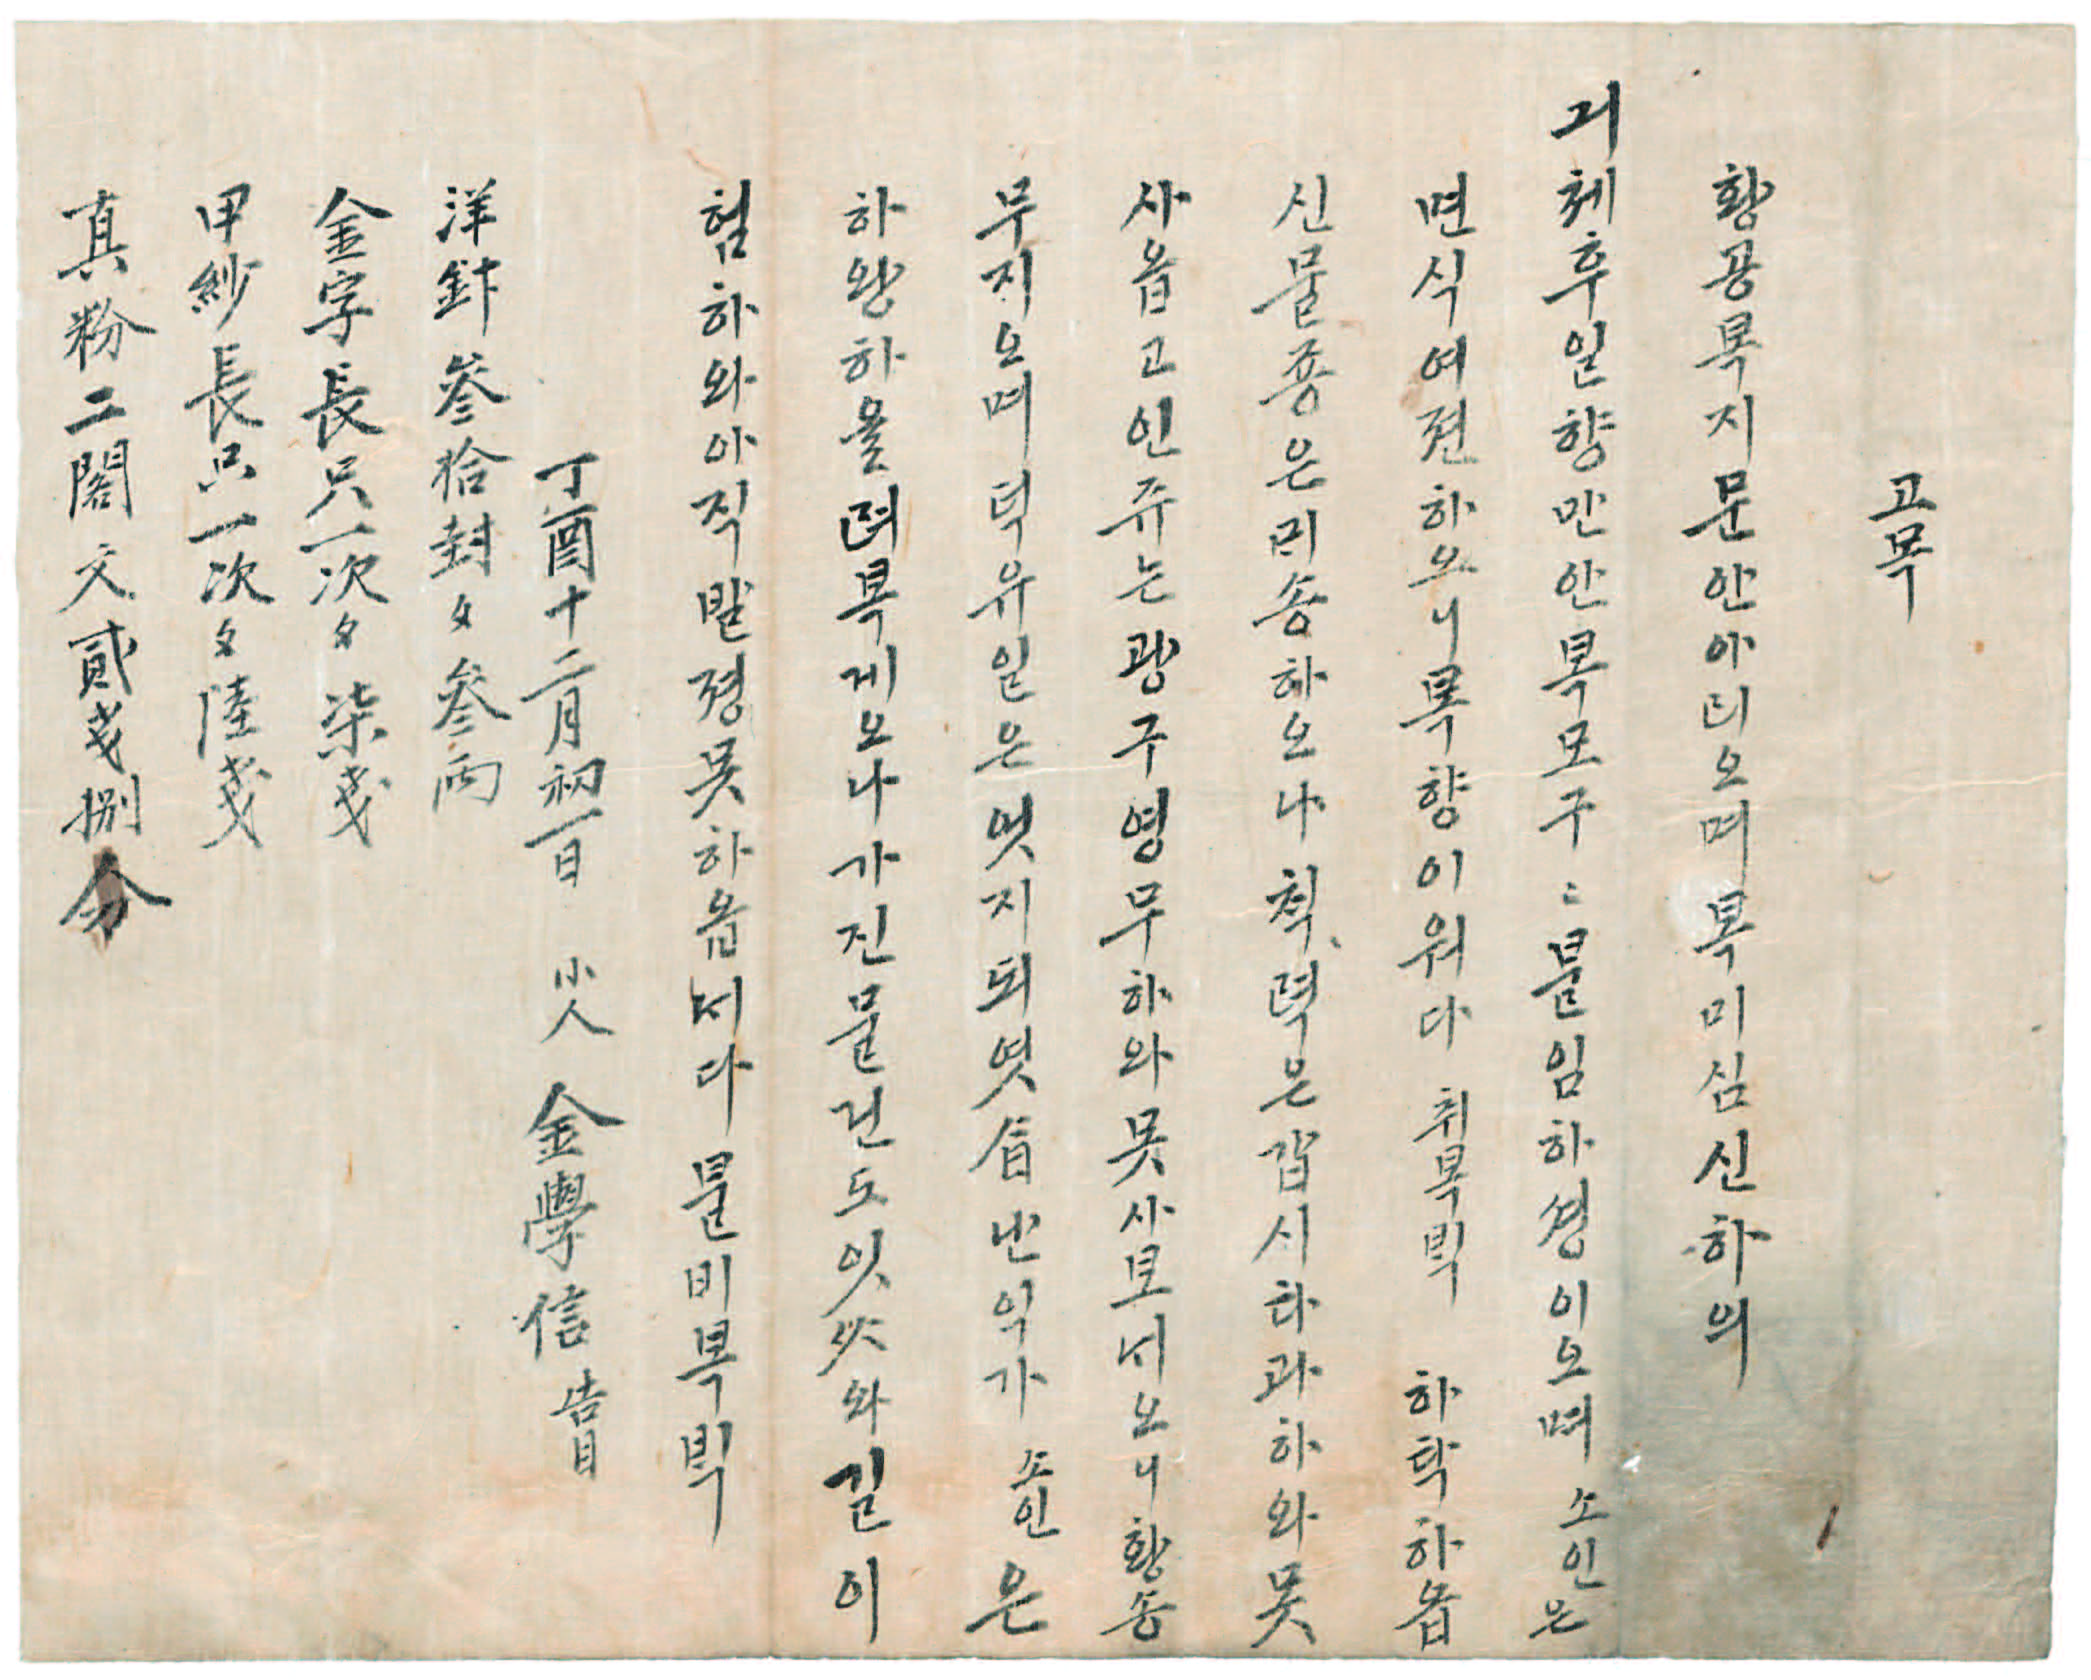 고목
황공복지문안아뢰오며복미심신하의
긔체후일향만안복모구〻불임하셩이오며 소인은
면식여젼하오니복향이워다 취복뵉 하탁하옵
신물죵은긔송하오나쳑력은갑시하과하와못
사옵고인쥬는광구영무하와못사보니오니황송
무지오며덕유일은엿지되엿습난잇가 소인은
하왕하올려복게오나가진물건도잇삿와길이
험하와아직발졍못하옵니다물비복뵉
丁酉十二月初一日 小人 金學信 告目
洋針參拾封文參兩
金字長只一次文柒戔
甲紗長只一次文陸戔
真粉二閣文貳戔捌分